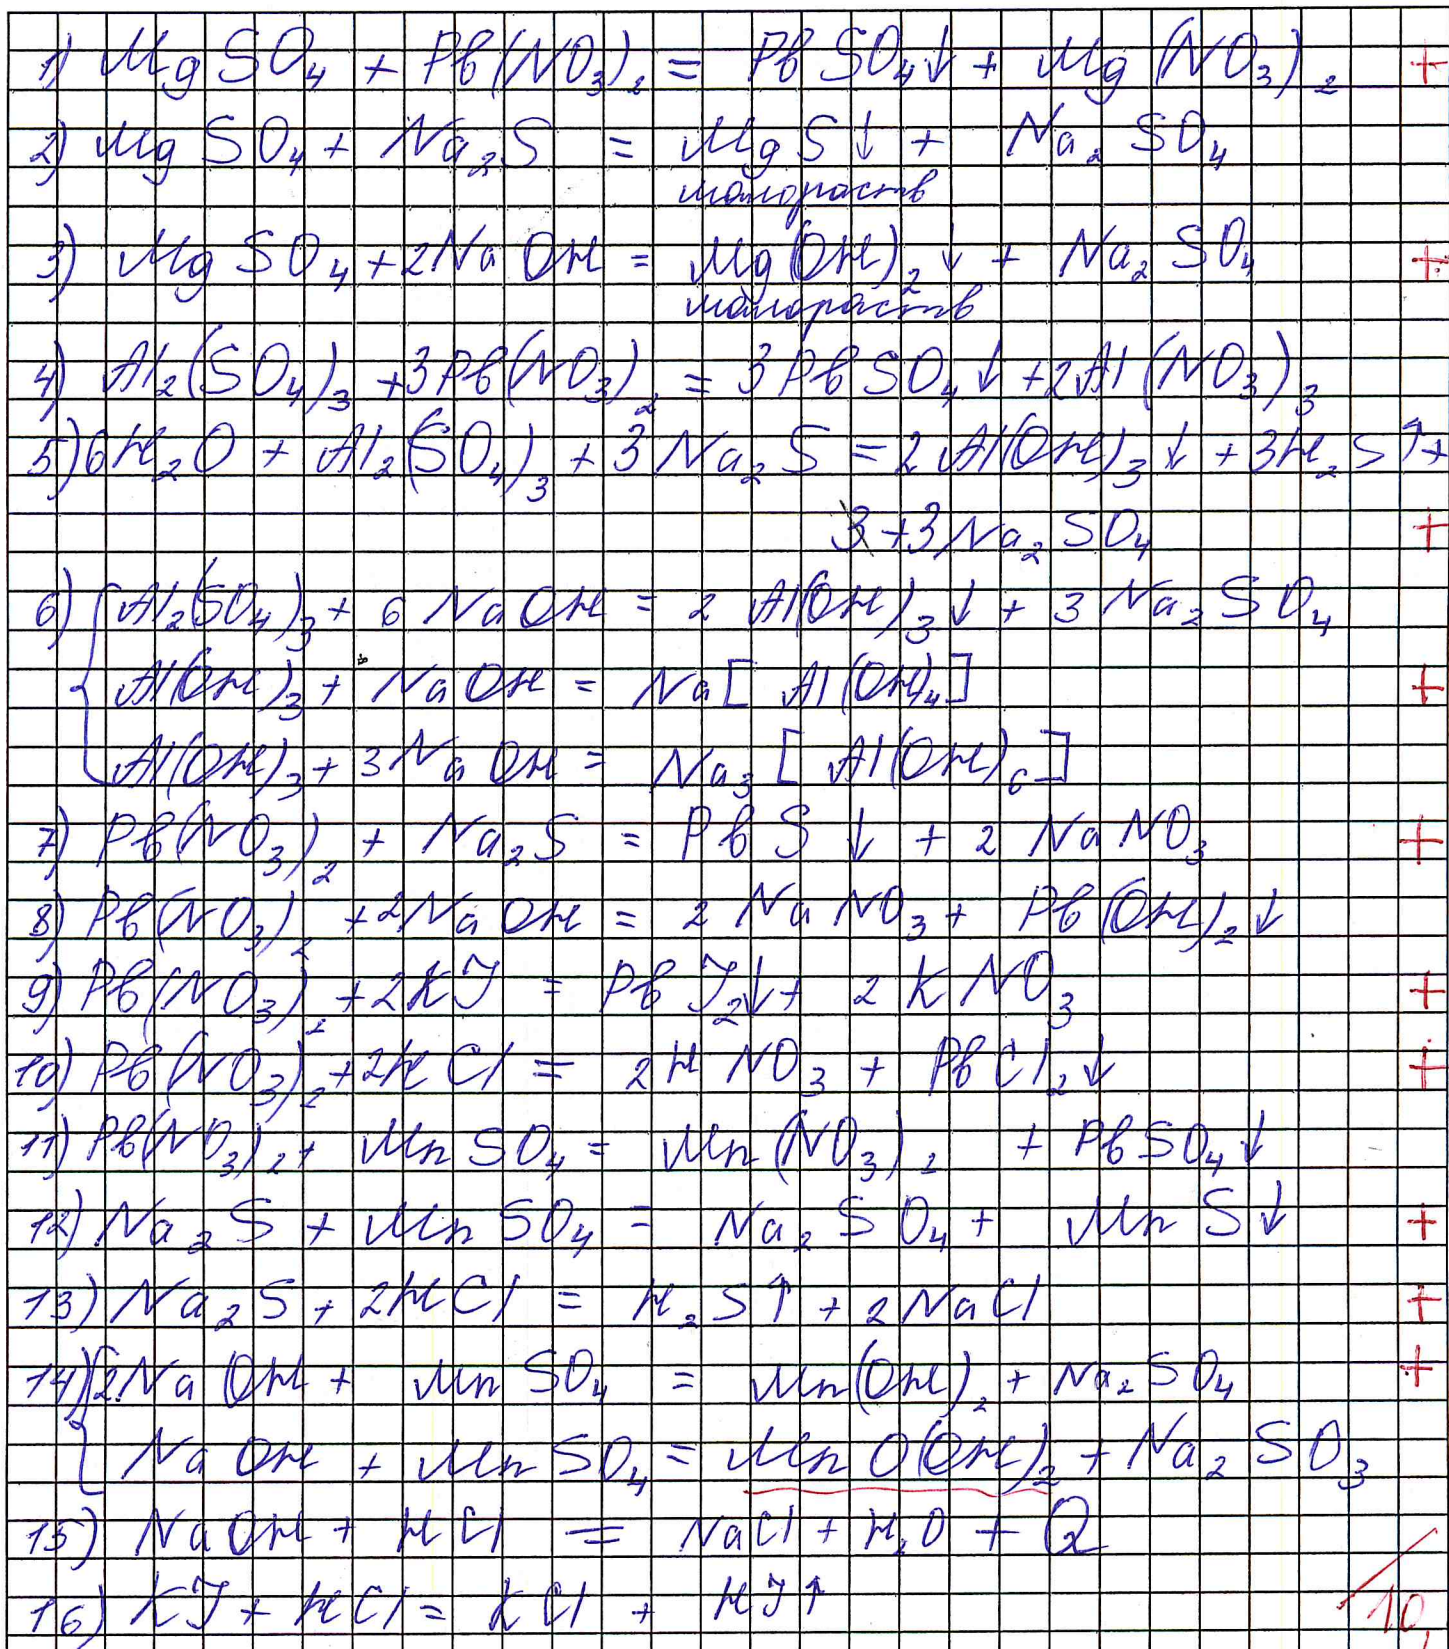 1) MgSO₄ + Pb(NO₃)₂ = PbSO₄↓ + Mg(NO₃)₂ +
2) MgSO₄ + Na₂S = MgS↓ + Na₂SO₄
малораств
3) MgSO₄ + 2NaOH = Mg(OH)₂↓ + Na₂SO₄ +
малораств
4) Al₂(SO₄)₃ + 3Pb(NO₃)₂ = 3PbSO₄↓ + 2Al(NO₃)₃
5) 6H₂O + Al₂(SO₄)₃ + 3Na₂S = 2Al(OH)₃↓ + 3H₂S↑ +
+ 3Na₂SO₄ +
6) Al₂(SO₄)₃ + 6NaOH = 2Al(OH)₃↓ + 3Na₂SO₄
Al(OH)₃ + NaOH = Na[Al(OH)₄] +
Al(OH)₃ + 3NaOH = Na₃[Al(OH)₆]
7) Pb(NO₃)₂ + Na₂S = PbS↓ + 2NaNO₃ +
8) Pb(NO₃)₂ + 2NaOH = 2NaNO₃ + Pb(OH)₂↓
9) Pb(NO₃)₂ + 2KJ = PbJ₂↓ + 2KNO₃ +
10) Pb(NO₃)₂ + 2HCl = 2HNO₃ + PbCl₂↓ +
11) Pb(NO₃)₂ + MnSO₄ = Mn(NO₃)₂ + PbSO₄↓
12) Na₂S + MnSO₄ = Na₂SO₄ + MnS↓ +
13) Na₂S + 2HCl = H₂S↑ + 2NaCl +
14) 2NaOH + MnSO₄ = Mn(OH)₂ + Na₂SO₄ +
NaOH + MnSO₄ = MnO(OH)₂ + Na₂SO₃
15) NaOH + HCl = NaCl + H₂O + Q
16) KJ + HCl = KCl + HJ↑ 10,